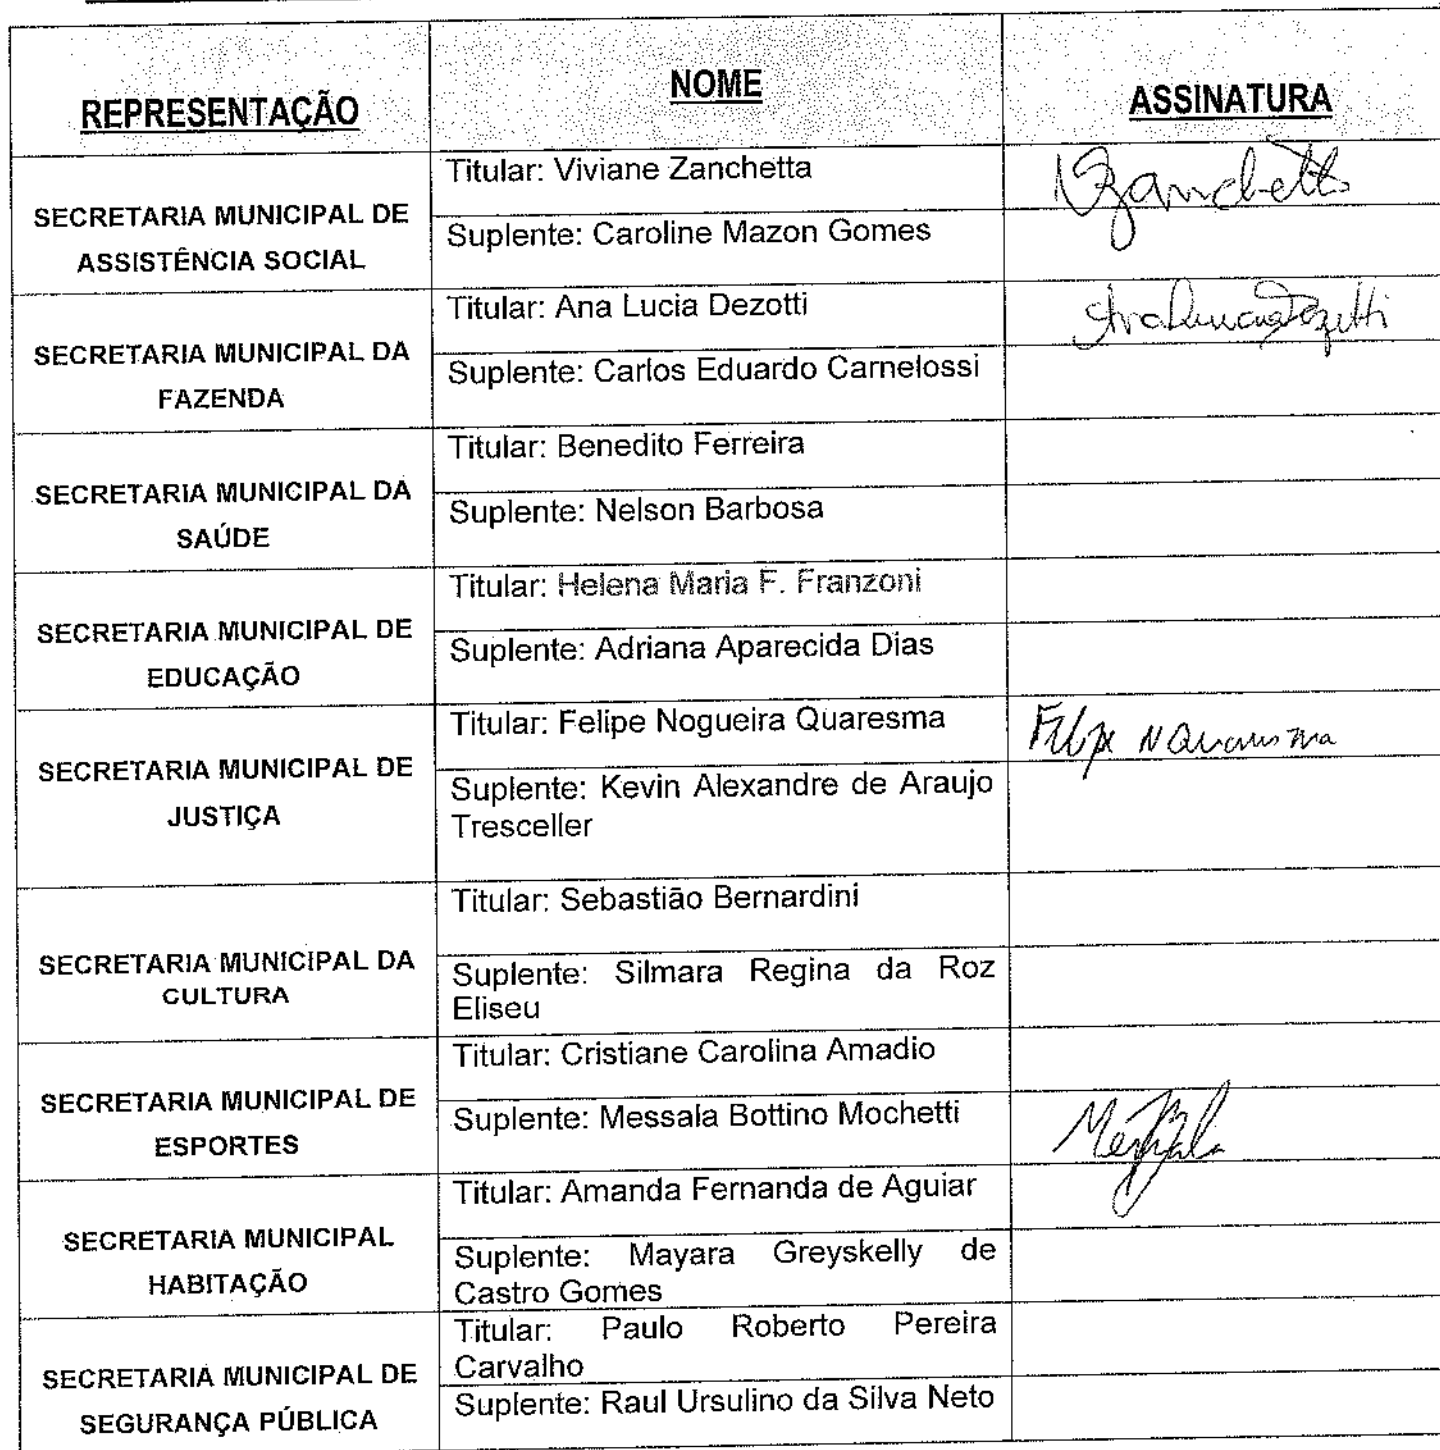 REPRESENTAÇÃO
NOME
ASSINATURA
SECRETARIA MUNICIPAL DE
ASSISTÊNCIA SOCIAL
Titular: Viviane Zanchetta
VZanchetta
Suplente: Caroline Mazon Gomes
SECRETARIA MUNICIPAL DA
FAZENDA
Titular: Ana Lucia Dezotti
Ana Lucia Dezotti
Suplente: Carlos Eduardo Carnelossi
SECRETARIA MUNICIPAL DA
SAÚDE
Titular: Benedito Ferreira
Suplente: Nelson Barbosa
SECRETARIA MUNICIPAL DE
EDUCAÇÃO
Titular: Helena Maria F. Franzoni
Suplente: Adriana Aparecida Dias
SECRETARIA MUNICIPAL DE
JUSTIÇA
Titular: Felipe Nogueira Quaresma
Felipe N Quaresma
Suplente: Kevin Alexandre de Araujo
Tresceller
SECRETARIA MUNICIPAL DA
CULTURA
Titular: Sebastião Bernardini
Suplente: Silmara Regina da Roz
Eliseu
SECRETARIA MUNICIPAL DE
ESPORTES
Titular: Cristiane Carolina Amadio
Suplente: Messala Bottino Mochetti
Messala
SECRETARIA MUNICIPAL
HABITAÇÃO
Titular: Amanda Fernanda de Aguiar
Suplente: Mayara Greyskelly de
Castro Gomes
SECRETARIA MUNICIPAL DE
SEGURANÇA PÚBLICA
Titular: Paulo Roberto Pereira
Carvalho
Suplente: Raul Ursulino da Silva Neto